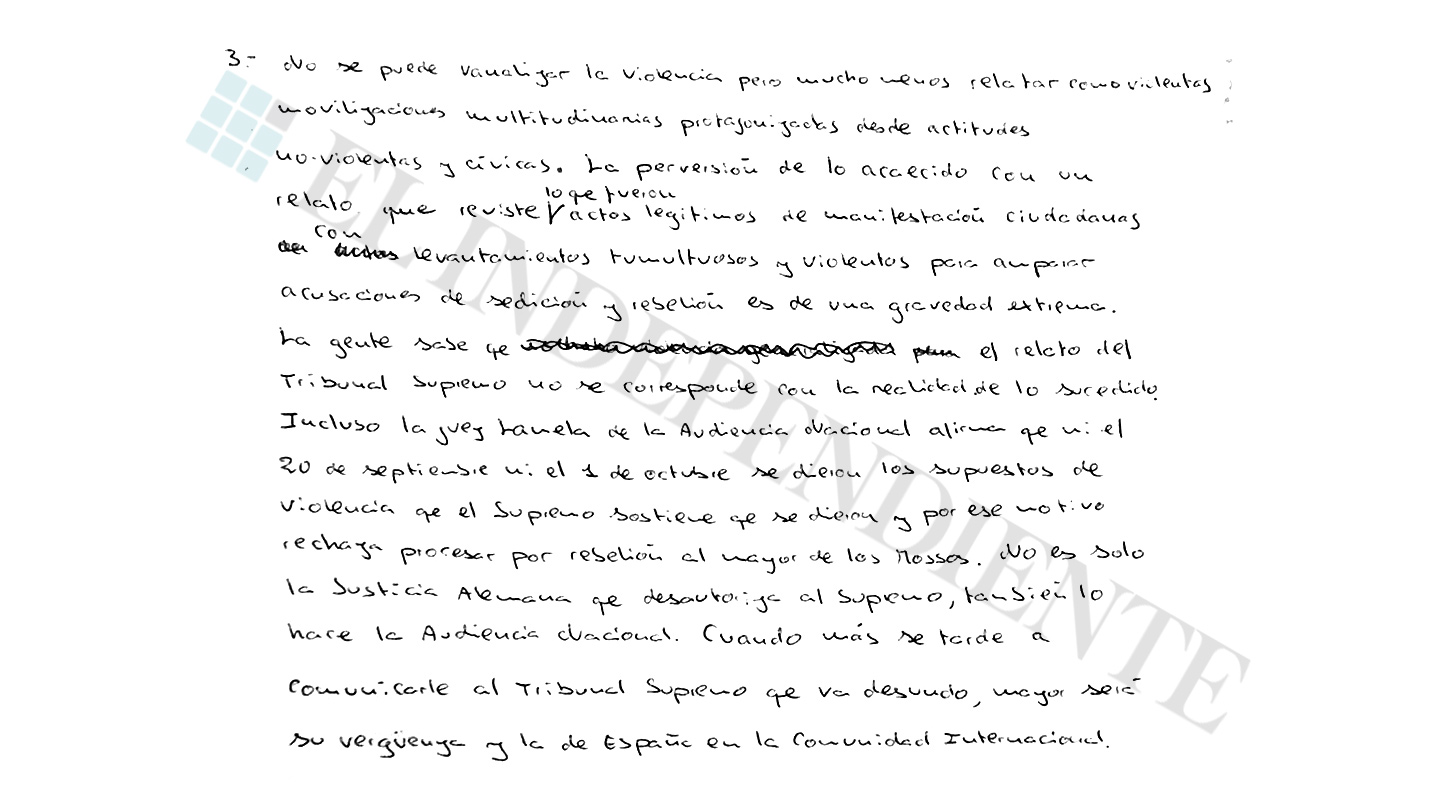 3.- No se puede vanalizar la violencia pero mucho menos relatar como violentas
movilizaciones multitudinarias protagonizadas desde actitudes
no-violentas y cívicas. La perversión de lo acaecido con un
lo qe fueron
relato que reviste actos legítimos de manifestación ciudadanas
con
levantamientos tumultuosos y violentos para amparar
acusaciones de sedición y rebelión es de una gravedad extrema.
La gente sabe qe el relato del
Tribunal Supremo no se corresponde con la realidad de lo sucedido.
Incluso la juez Lamela de la Audiencia Nacional afirma qe ni el
20 de septiembre ni el 1 de octubre se dieron los supuestos de
violencia qe el Supremo sostiene qe se dieron y por ese motivo
rechaza procesar por rebelión al mayor de los Mossos. No es solo
la Justicia Alemana qe desautoriza al Supremo, también lo
hace la Audiencia Nacional. Cuando más se tarde a
comunicarle al Tribunal Supremo qe va desnudo, mayor será
su vergüenza y la de España en la Comunidad Internacional.
EL INDEPENDIENTE